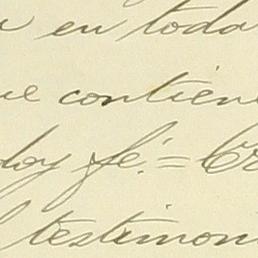 en toda
que contiene
doy fé. = Cr
testimoni